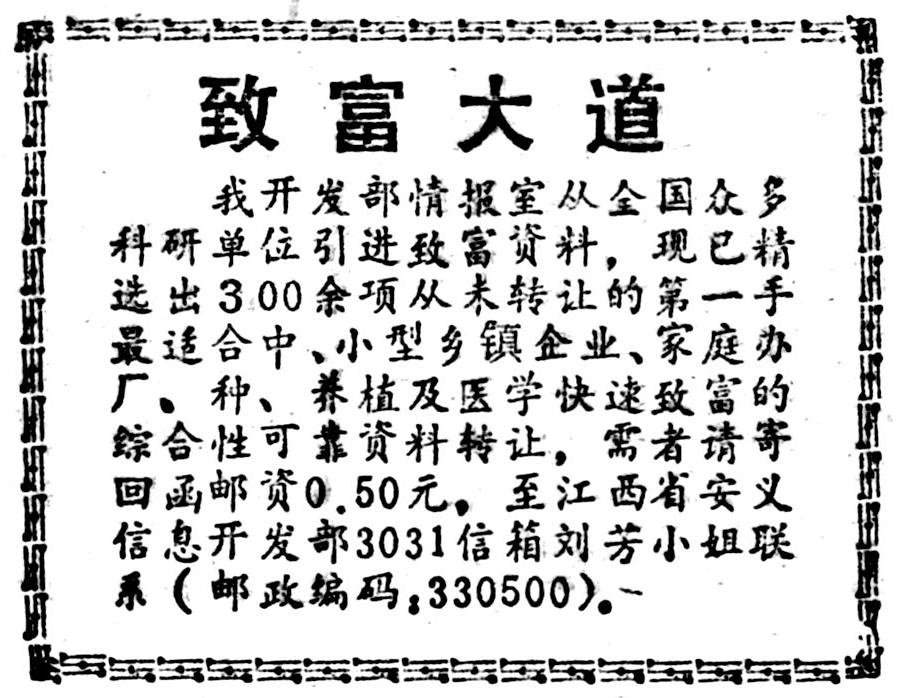 致富大道
我开发部情报室从全国众多
科研单位引进致富资料，现已精
选出300余项从未转让的第一手
最适合中、小型乡镇企业、家庭办
厂、种、养植及医学快速致富的
综合性可靠资料转让，需者请寄
回函邮资0.50元。至江西省安义
信息开发部3031信箱刘芳小姐联
系(邮政编码:330500)。